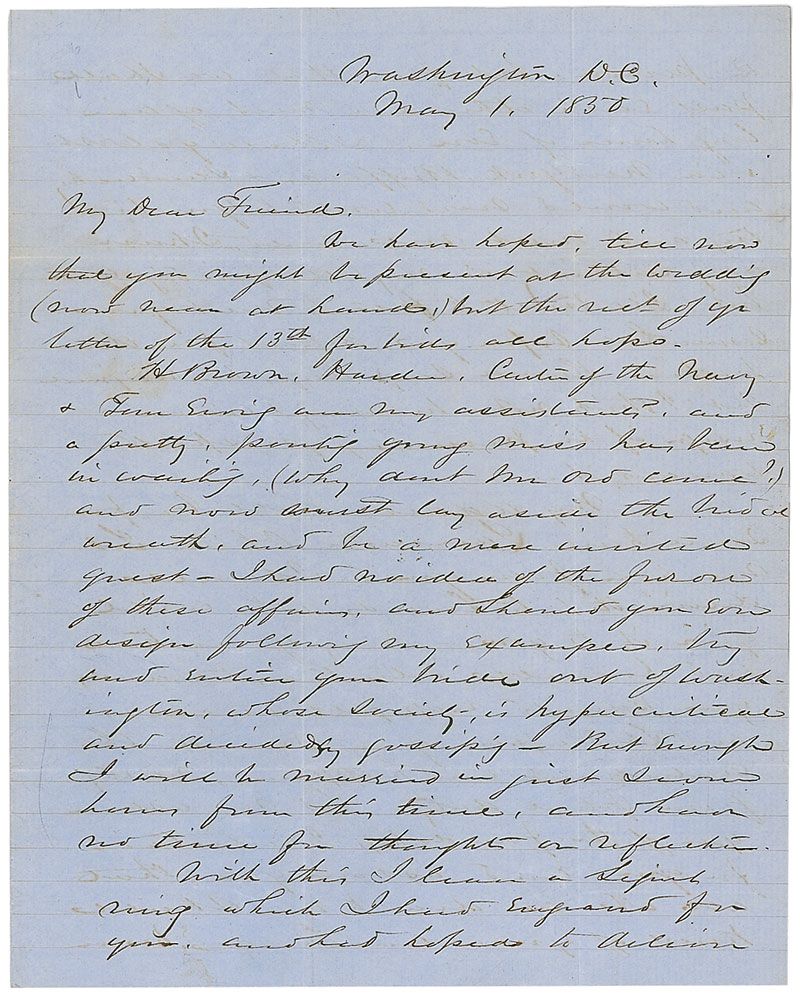 Washington D.C.
May 1. 1850
My Dear Friend.
We have hoped, till now
that you might be present at the wedding
(now near at hand,) but the rect of yr
letter of the 13th forbids all hope.
H Brown, Hardie, Carter of the Navy
& Tom Ewing are my assistants, and
a pretty, pouting young miss has been
in waiting, (why dont Mr Ord come?)
and now must lay aside the bridal
wreath, and be a mere invited
guest – I had no idea of the furore
of these affairs, and should you Ever
design following my Example, try
and entice your bride out of Wash-
ington, whose Society, is hypercritical
and decidedly gossipg – But Enough
I will be married in just Seven
hours from this time, and have
no time for thought or reflection.
With this I leave a Signet
ring which I had Engraved for
you. and had hoped to deliver